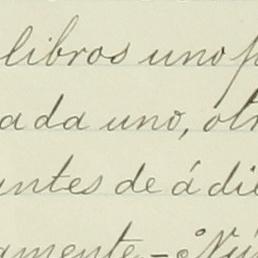 libros uno p
ada uno, otr
ntes de á die
amente.- Nú